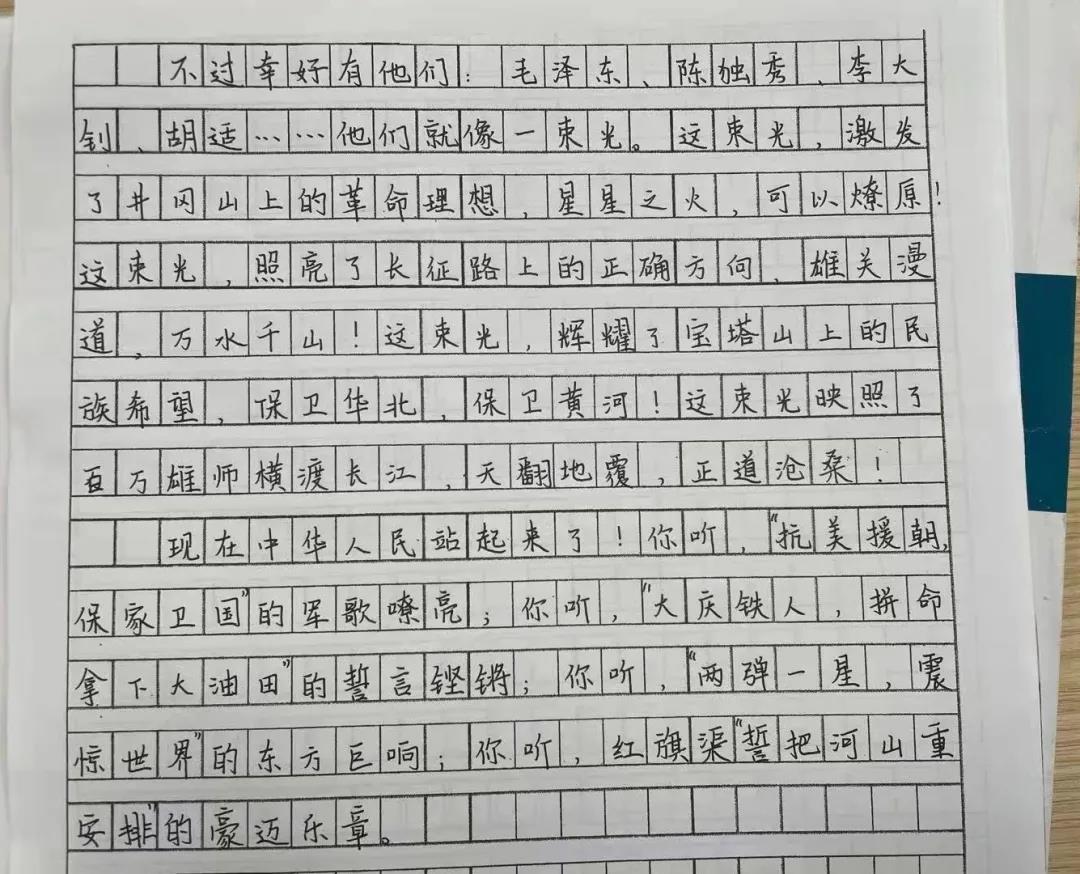 不过幸好有他们：毛泽东、陈独秀、李大
钊、胡适……他们就像一束光。这束光，激发
了井冈山上的革命理想，星星之火，可以燎原！
这束光，照亮了长征路上的正确方向，雄关漫
道，万水千山！这束光，辉耀了宝塔山上的民
族希望，保卫华北，保卫黄河！这束光映照了
百万雄师横渡长江，天翻地覆，正道沧桑！
现在中华人民站起来了！你听，“抗美援朝，
保家卫国”的军歌嘹亮；你听，“大庆铁人，拼命
拿下大油田”的誓言铿锵；你听，“两弹一星，震
惊世界”的东方巨响；你听，红旗渠“誓把河山重
安排”的豪迈乐章。